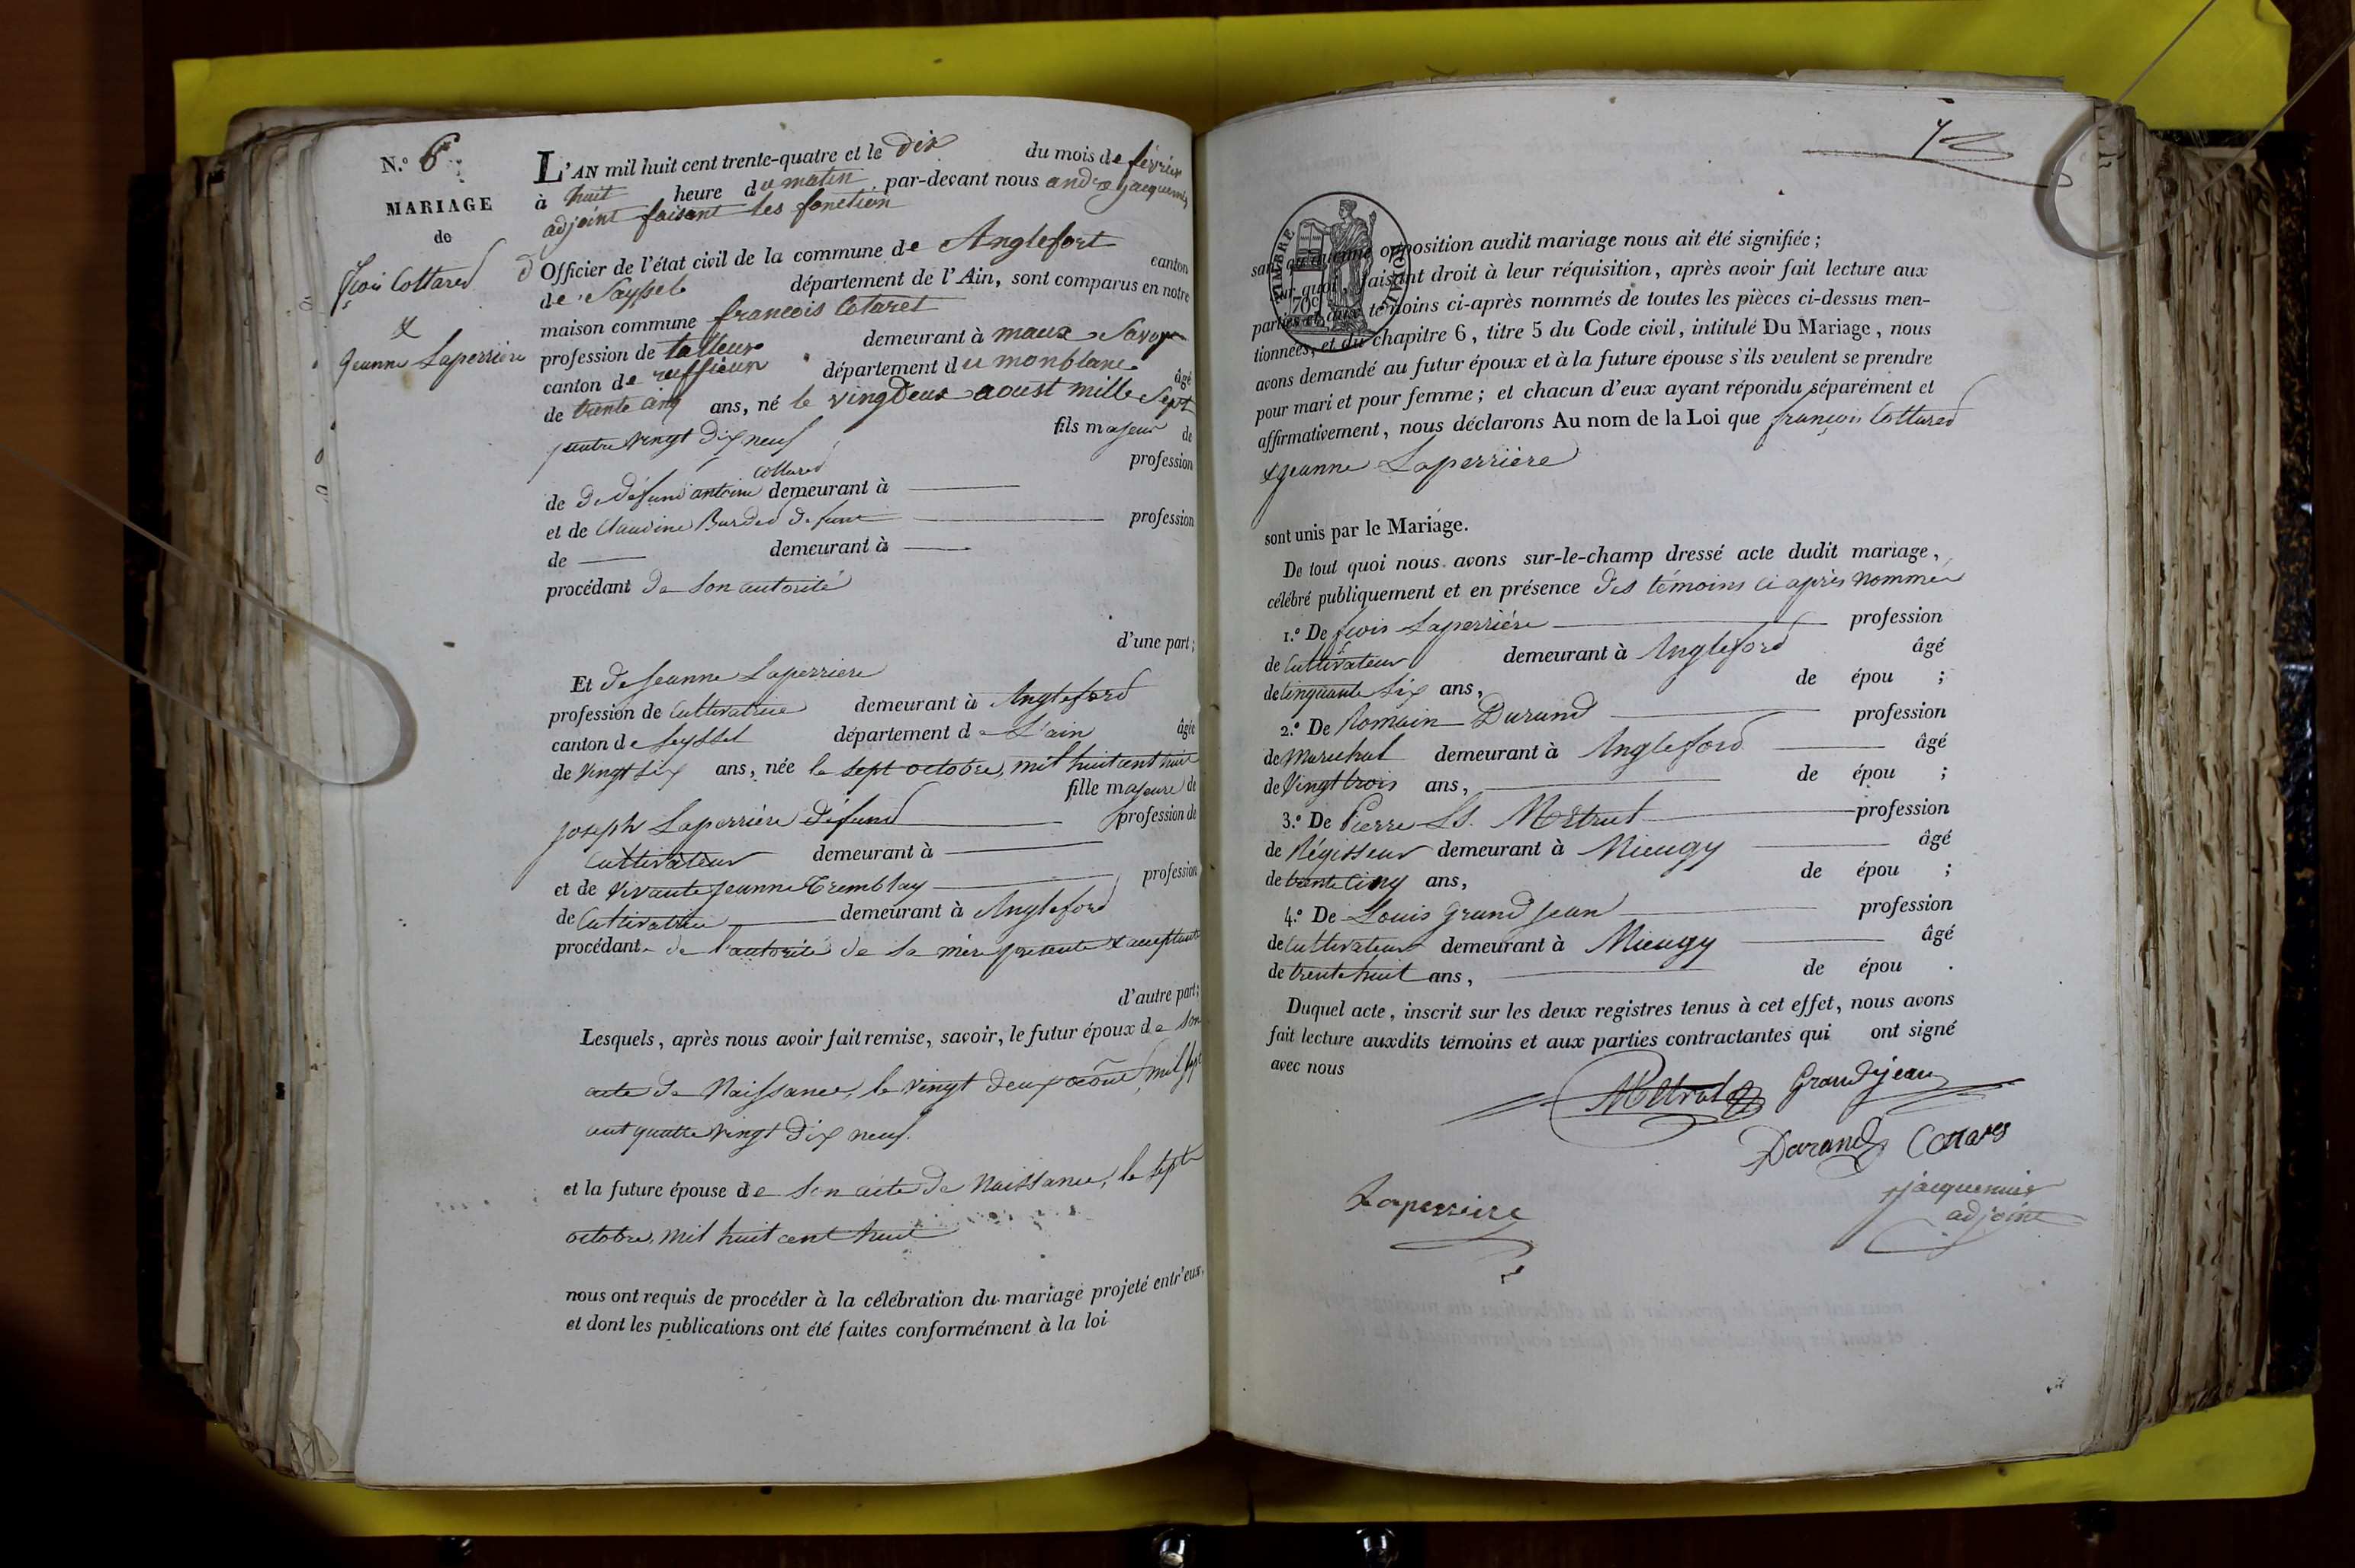 N.o 6
MARIAGE
de
fcois Cottared
&
Jeanne Laperrière
L'AN mil huit cent trente-quatre et le dix du mois de février
à huit heure du matin par-devant nous andre jacquemier
adjoint faisant les fonction
d Officier de l'état civil de la commune de Anglefort canton
de Seyssel département de l'Ain, sont comparus en notre
maison commune francois Cotaret
profession de talleur demeurant à Savoye
canton de ruffieux département du monblanc âgé
de trente cinq ans, né le vingdeux aoust mille Sept
quatre vingt dix neuf fils majeur de
Cottared profession
de De défund antoine demeurant à
et de Claudine Burded defunt profession
de demeurant à
procédant de Son autorité
d'une part;
Et de Jeanne Laperriere
profession de Cultivatrice demeurant à Angleford
canton de Seyssel département de L'ain âgée
de Vingt Six ans, née le Sept octobre, mil huit cent huit
fille majeure de
joseph Laperriere défund profession de
Cultivateur demeurant à
et de vivante jeanne Tremblay profession
de Cultivatrice demeurant à Angleford
procédante de l'autorité de Sa mère presente & acceptante
d'autre part;
Lesquels, après nous avoir fait remise, savoir, le futur époux de Son
acte de Naissance, le vingt deux août, mil Sept
cent quatre vingt Dix neuf.
et la future épouse de Son acte de Naissance, le Sept
octobre, mil huit cent huit
nous ont requis de procéder à la célébration du mariage projeté entr'eux,
et dont les publications ont été faites conformément à la loi
TIMBRE
70c
sans qu'aucune opposition audit mariage nous ait été signifiée;
Sur quoi, faisant droit à leur réquisition, après avoir fait lecture aux
parties et aux témoins ci-après nommés de toutes les pièces ci-dessus men-
tionnées, et du chapitre 6, titre 5 du Code civil, intitulé Du Mariage, nous
avons demandé au futur époux et à la future épouse s'ils veulent se prendre
pour mari et pour femme; et chacun d'eux ayant répondu séparément et
affirmativement, nous déclarons Au nom de la Loi que françois Cottared
& Jeanne Laperrière
sont unis par le Mariage.
De tout quoi nous avons sur-le-champ dressé acte dudit mariage,
célébré publiquement et en présence des témoins ci après Nommés
1.o De fcois Laperrière profession
de Cultivateur demeurant à Angleford âgé
de Cinquante Six ans, de épou ;
2.o De Romain Durand profession
de Marechal demeurant à Angleford âgé
de Vingt trois ans, de épou ;
3.o De Pierre Ls. Métrat profession
de Régisseur demeurant à Mieugy âgé
de trente Cinq ans, de épou ;
4.o De Louis Grand jean profession
de Cultivateur demeurant à Mieugy âgé
de trente huit ans, de épou .
Duquel acte, inscrit sur les deux registres tenus à cet effet, nous avons
fait lecture auxdits témoins et aux parties contractantes qui ont signé
avec nous
Métrat Grandjean
Durand Cottares
Laperreire jacquemier
adjoint